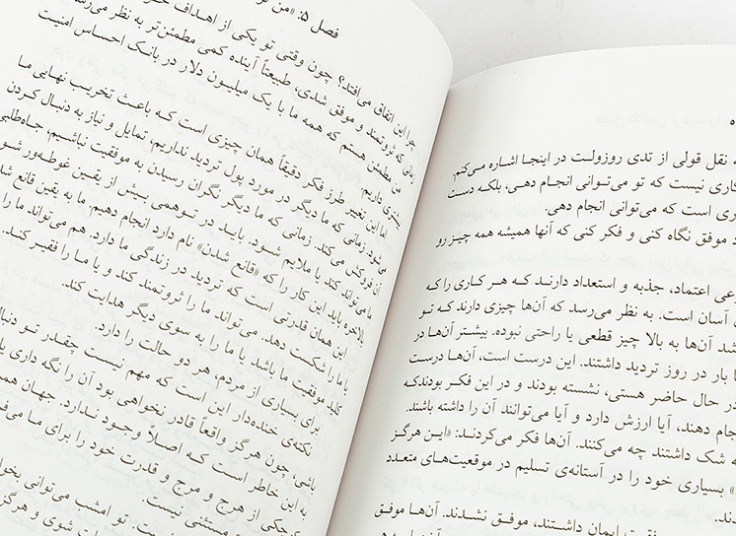 ه نقل قولی از تدی روزولت در اینجا اشاره می‌کنم.
کاری نیست که تو می‌توانی انجام دهی، بلکه دست
ری است که می‌توانی انجام دهی.
د موفق نگاه کنی و فکر کنی که آنها همیشه همه چیز رو
عی اعتماد، جذبه و استعداد دارند که هر کاری را که
آسان است. به نظر می‌رسد که آن‌ها چیزی دارند که تو
شد آن‌ها به بالا چیز قطعی یا راحتی نبوده. بیشتر آن‌ها در
ا بار در روز تردید داشتند. این درست است، آن‌ها درست
در حال حاضر هستی، نشسته بودند و در این فکر بودند که
جام دهند، آیا ارزش دارد و آیا می‌توانند آن را داشته باشند.
ه شک داشتند چه می‌کنند. آن‌ها فکر می‌کردند: «این هرگز
» بسیاری خود را در آستانه‌ی تسلیم در موقعیت‌های متعدد
دند.
ایمان داشتند، موفق نشدند. آن‌ها موفق
فصل ۵: «من
چرا این اتفاق می‌افتد؟ چون وقتی تو یکی از اهداف
زمانی که ثروتمند و موفق شدی، طبیعتاً آینده کمی مطمئن‌تر به نظر می‌رسد
من مطمئن هستم که همه ما با یک میلیون دلار در بانک احساس امنیت
بیشتری داریم.
اما این تغییر طرز فکر دقیقاً همان چیزی است که باعث تخریب نهایی ما
می‌شود. زمانی که ما دیگر در مورد پول تردید نداریم، تمایل و نیاز به دنبال کردن
آن فروکش می‌کند. زمانی که ما دیگر نگران رسیدن به موفقیت نباشیم، جاه‌طلبی
ما می‌تواند کند یا ملایم شود. باید در توهمی بیش از یقین غوطه‌ور شو
بالاخره باید این کار را که «قانع شدن» نام دارد انجام دهیم. ما به یقین قانع شد
این همان قدرتی است که تردید در زندگی ما دارد. هم می‌تواند ما را
یا ما را شکست دهد. می‌تواند ما را ثروتمند کند و یا ما را فقیر کند.
کلید موفقیت ما باشد یا ما را به سوی دیگر هدایت کند.
برای بسیاری از مردم، هر دو حالت را دارد.
نکته‌ی خنده‌دار این است که مهم نیست چقدر تو دنبال
باشی، چون هرگز واقعاً قادر نخواهی بود آن را نگه داری یا
به این خاطر است که اصلاً وجود ندارد. جهان همه
کوچکی از هرج و مرج و قدرت خود را برای ما می‌فر
مستثنی نیست.
تو امشب می‌توانی بخوا
شوی و هرگز